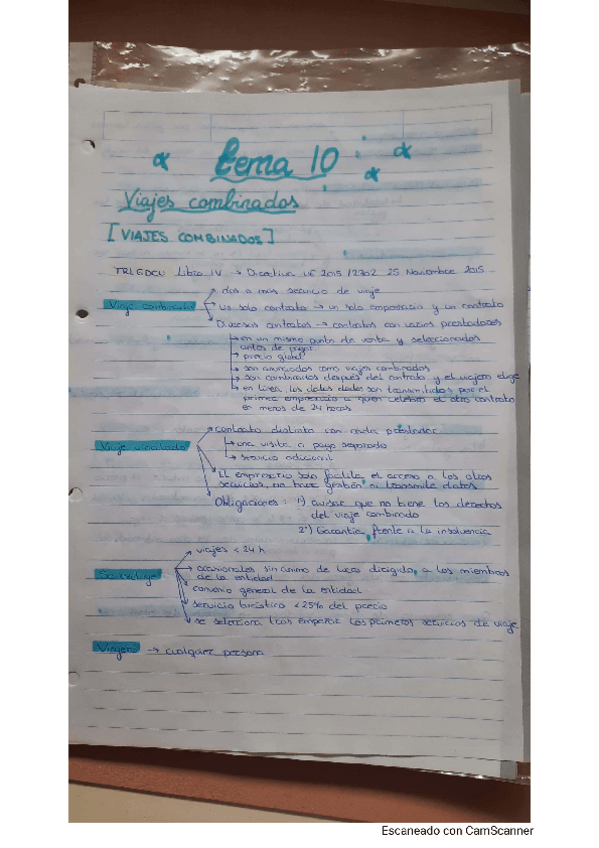 tema 10
Viajes combinados
[VIAJES COMBINADOS]
TRLGDCU Libro IV → Directiva UE 2015/2302 25 Noviembre 2015
Viaje combinado
dos o más servicio de viaje
Un solo contrato → un solo empresario y un contrato
Diversos contratos → contratos con varios prestadores
en un mismo punto de venta y seleccionados
antes de pagar
precio global
son anunciados como viajes combinados
son combinados después del contrato y el viajero elige
en línea, los datos dados son transmitidos por el
primer empresario a quien celebró el otro contrato
en menos de 24 horas
Viaje vinculado
contrato distinto con cada prestador
una visita o pago separado
servicio adicional
El empresario solo facilita el acceso a los otros
servicios, no hace gestión ni transmite datos
Obligaciones: 1) avisar que no tiene los derechos
del viaje combinado
2º) Garantía frente a la insolvencia
Se excluye
viajes < 24 h
ocasionales sin animo de lucro dirigido a los miembros
de la entidad
convenio general de la entidad
servicio turístico < 25% del precio
se selecciona tras empezar los primeros servicios de viaje
Viajero → cualquier persona
Escaneado con CamScanner